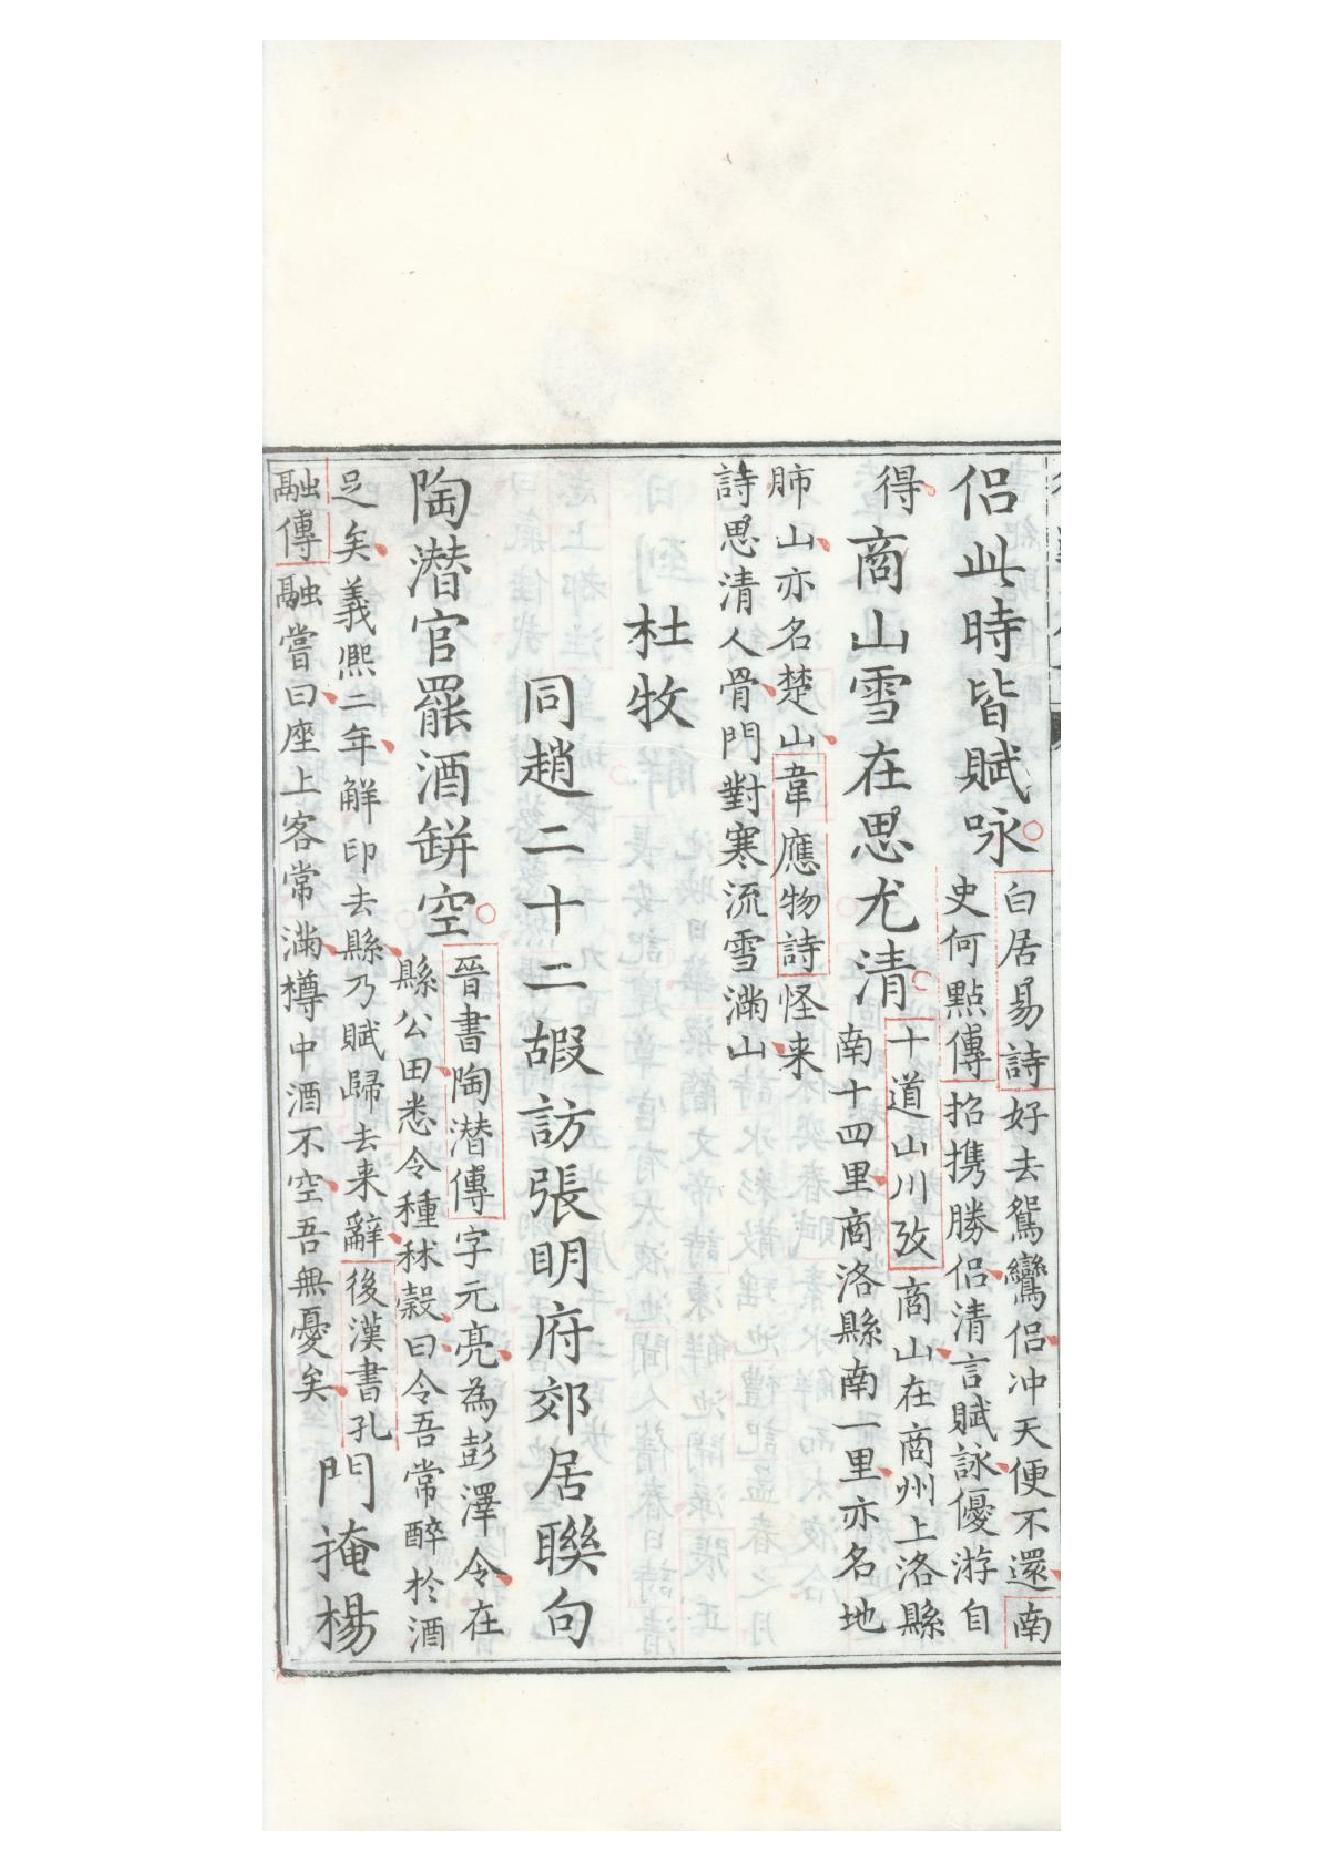 侣此時皆賦咏白居昜詩好去鴛鸞侣冲天便不還南
史何點傳招携勝侣清言賦詠優游自
得商山雪在思尤清十道山川攷商山在商州上洛縣
南十四里商洛縣南一里亦名地
肺山亦名楚山韋應物詩怪来
詩思清人骨門對寒流雪滿山
杜牧
同趙二十二嘏訪張明府郊居聯句
陶潜官罷酒缾空晉書陶潜傳字元亮為彭澤令在
縣公田悉令種秫穀曰令吾常醉於酒
足矣義熙二年解印去縣乃賦歸去来辭後漢書孔
融傳融嘗曰座上客常滿樽中酒不空吾無憂矣門掩楊